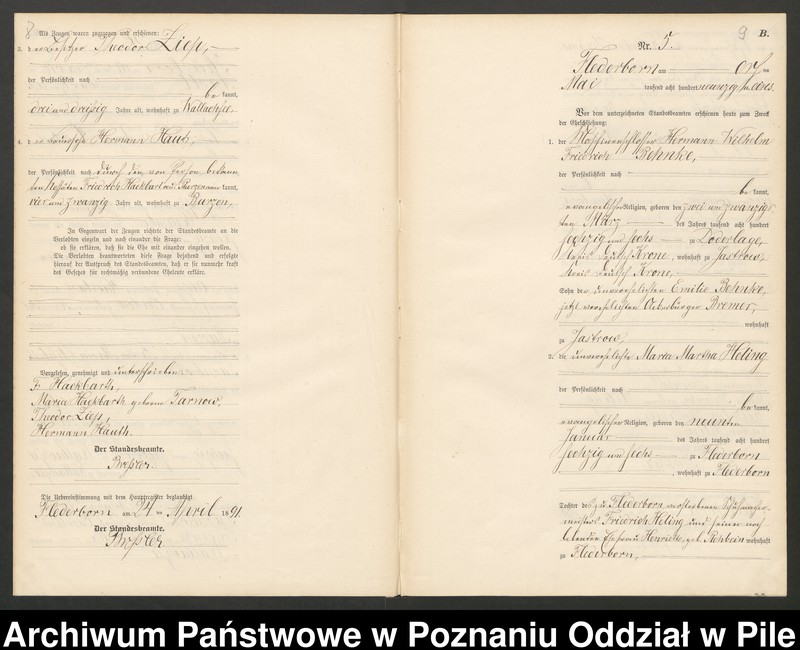 8
Als Zeugen waren zugezogen und erschienen:
3. der Besitzer Theodor Ziep,
der Persönlichkeit nach
be kannt,
drei und dreißig Jahre alt, wohnhaft zu Wallachsee,
4. der Hermann Hauth,
der Persönlichkeit nach durch den von Person bekann-
ten Friedrich Hackbart aus Burzen kannt,
vier und zwanzig Jahre alt, wohnhaft zu Burzen,
In Gegenwart der Zeugen richtete der Standesbeamte an die
Verlobten einzeln und nach einander die Frage:
ob sie erklären, daß sie die Ehe mit einander eingehen wollen.
Die Verlobten beantworteten diese Frage bejahend und erfolgte
hierauf der Ausspruch des Standesbeamten, daß er sie nunmehr kraft
des Gesetzes für rechtmäßig verbundene Eheleute erkläre.
Vorgelesen, genehmigt und unterschrieben
F. Hackbarth,
Maria Hackbarth geborene Tarnow,
Theodor Ziep,
Hermann Hauth.
Der Standesbeamte.
Die Uebereinstimmung mit dem Hauptregister beglaubigt
Flederborn am 24 ten April 1891.
Der Standesbeamte.
9
B.
Nr. 5.
Flederborn am
Mai tausend acht hundert neunzig und eins.
Vor dem unterzeichneten Standesbeamten erschienen heute zum Zweck
der Eheschließung:
1. der Maschinenschlosser Hermann Wilhelm
Friedrich Behnke,
der Persönlichkeit nach
be kannt,
evangelischer Religion, geboren den zwei und zwanzig-
sten März des Jahres tausend acht hundert
sechzig und sechs zu Lederlage,
Kreis Deutsch Krone, wohnhaft zu Jastrow,
Kreis Deutsch Krone,
Sohn der unverehelichten Emilie Behnke,
jetzt verehelichten Ackerbürger Bremer,
wohnhaft
zu Jastrow,
2. die unverehelichte Maria Martha Heling
der Persönlichkeit nach
be kannt,
evangelischer Religion, geboren den neunten
Januar des Jahres tausend acht hundert
sechzig und sechs zu Flederborn
, wohnhaft zu Flederborn
Tochter des zu Flederborn verstorbenen Schuhmacher-
meisters Friedrich Heling und seiner noch
lebenden Ehefrau Henriette, geb. Rehbein wohnhaft
zu Flederborn,
Archiwum Państwowe w Poznaniu Oddział w Pile